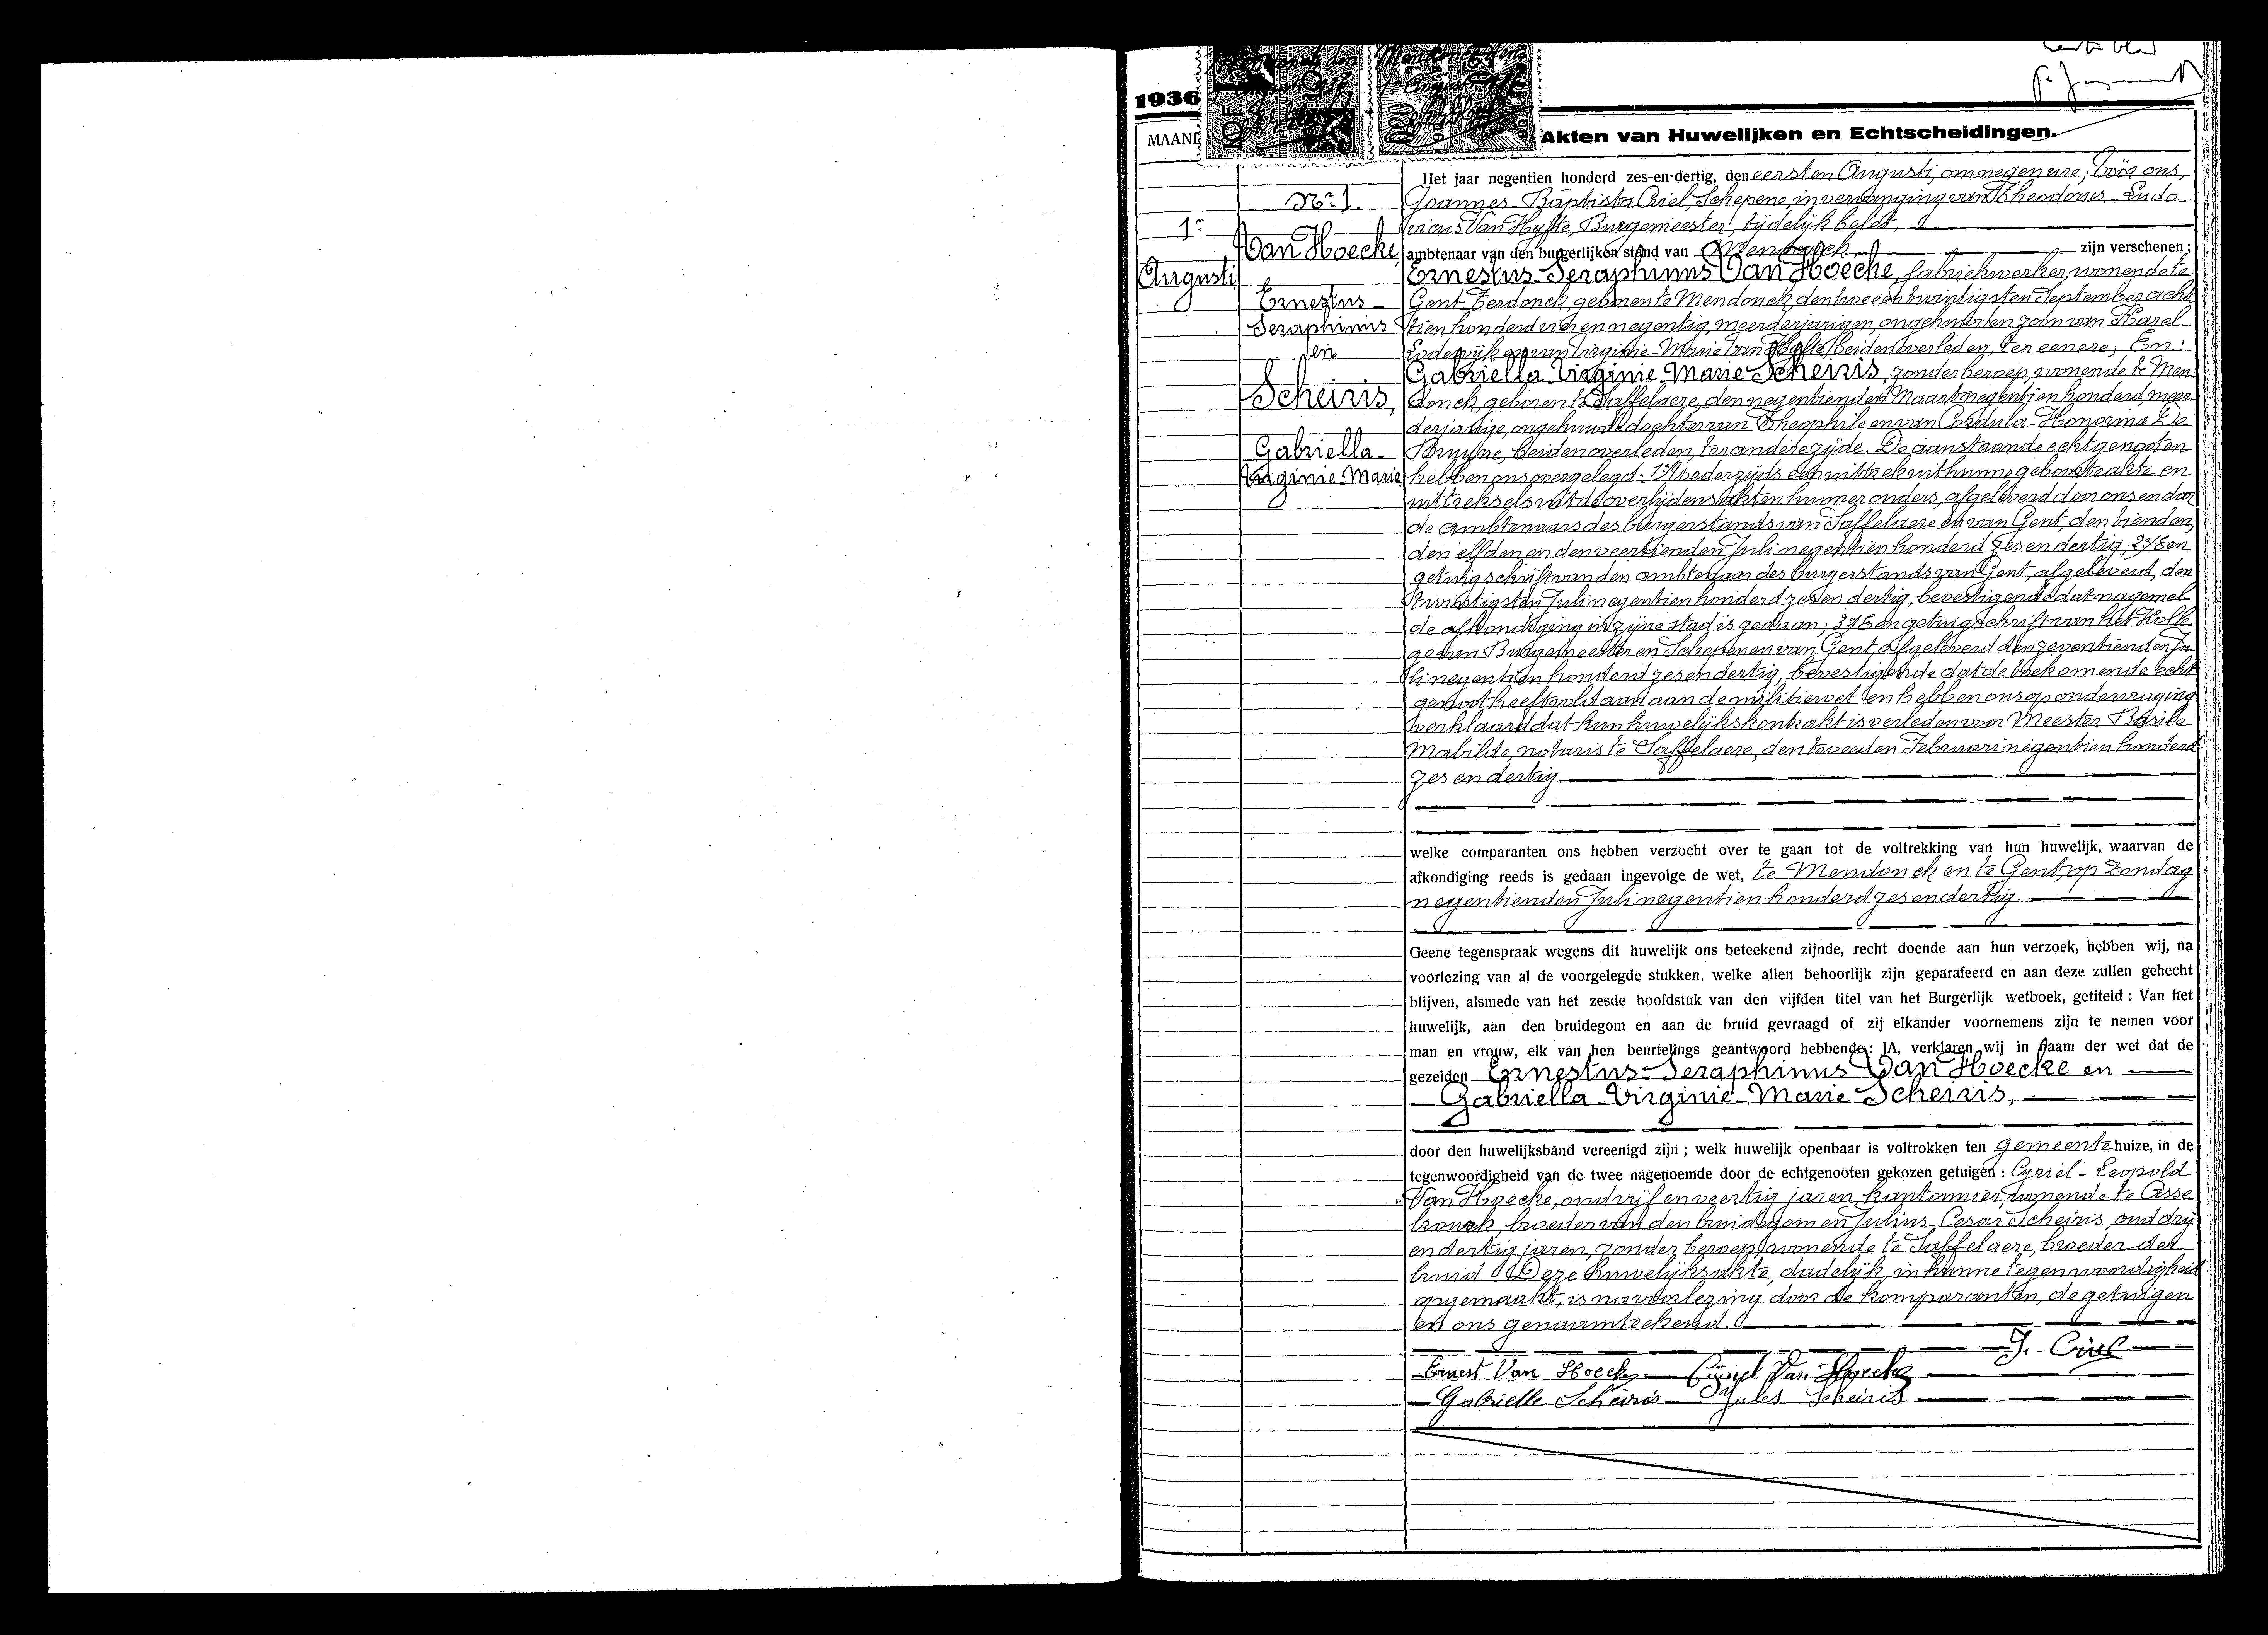 1936
MAAND
Akten van Huwelijken en Echtscheidingen.
Het jaar negentien honderd zes-en-dertig, den eersten Augusti, om negen ure, vóór ons,
Nr 1.
Joannes-Baptista Criel, Schepene, in vervanging van Theodorus-Ludo-
1n
vicus Van Hyfte, Burgemeester, tijdelijk belet,
Van Hoecke,
ambtenaar van den burgerlijken stand van Mendonck zijn verschenen;
Augusti
Ernestus-Seraphinus Van Hoecke, fabriekwerker, wonende te
Ernestus-
Gent-Terdonck, geboren te Mendonck, den twee en twintigsten September acht
Seraphinus
tien honderd vier en negentig, meerderjarigen, ongehuwden zoon van Karel
en
Lodewijk en van Virginie-Marie Van Hyfte, beiden overleden, ter eenere; En:
Gabriella-Virginie-Marie Scheiris, zonder beroep, wonende te Men
Scheiris,
donck, geboren te Saffelaere, den negentienden Maart negentien honderd, meer
derjarige, ongehuwde dochter van Theophile en van Cordula-Honorina De
Gabriella-
Bruyne, beiden overleden, ter andere zijde. De aanstaande echtgenooten
Virginie-Marie
hebben ons overgelegd: 1º/ Wederzijds een uittrek uit hunne geboorteakte en
uittreksels uit de overlijdensakten hunner ouders, afgeleverd door ons en door
de ambtenaars des burgerstands van Saffelaere en van Gent, den tienden,
den elfden en den veertienden Juli negentien honderd zes en dertig; 2º/ Een
getuigschrift van den ambtenaar des burgerstands van Gent, afgeleverd, den
twintigsten Juli negentien honderd zes en dertig, bevestigende dat nagemel
de afkondiging in zijne stad is gedaan; 3º/ Een getuigschrift van het Kolle
ge van Burgemeester en Schepenen van Gent, afgeleverd den zeventienden Ju-
li negentien honderd zes en dertig, bevestigende dat de toekomende echt
genoot heeft voldaan aan de militiewet en hebben ons op ondervraging
verklaard dat hun huwelijkskontrakt is verleden voor Meester Basile
Mabilde, notaris te Saffelaere, den tweeden Februari negentien honderd
zes en dertig.
welke comparanten ons hebben verzocht over te gaan tot de voltrekking van hun huwelijk, waarvan de
afkondiging reeds is gedaan ingevolge de wet, te Mendonck en te Gent, op Zondag
negentienden Juli negentien honderd zes en dertig.
Geene tegenspraak wegens dit huwelijk ons beteekend zijnde, recht doende aan hun verzoek, hebben wij, na
voorlezing van al de voorgelegde stukken, welke allen behoorlijk zijn geparafeerd en aan deze zullen gehecht
blijven, alsmede van het zesde hoofdstuk van den vijfden titel van het Burgerlijk wetboek, getiteld : Van het
huwelijk, aan den bruidegom en aan de bruid gevraagd of zij elkander voornemens zijn te nemen voor
man en vrouw, elk van hen beurtelings geantwoord hebbende: JA, verklaren wij in naam der wet dat de
gezeiden Ernestus-Seraphinus Van Hoecke en
Gabriella-Virginie-Marie Scheiris,
door den huwelijksband vereenigd zijn ; welk huwelijk openbaar is voltrokken ten gemeentehuize, in de
tegenwoordigheid van de twee nagenoemde door de echtgenooten gekozen getuigen : Cyriel-Leopold
Van Hoecke, oud vijf en veertig jaren, kantonnier, wonende te Asse
bronck, broeder van den bruidegom en Julius-Cesar Scheiris, oud drij
en dertig jaren, zonder beroep, wonende te Saffelaere, broeder der
bruid. Deze huwelijksakte, dadelijk, in hunne tegenwoordigheid
opgemaakt, is na voorlezing door de komparanten, de getuigen
en ons genaamteekend.
J. Criel
Ernest Van Hoecke Cyriel Van Hoecke
Gabrielle Scheiris Jules Scheiris